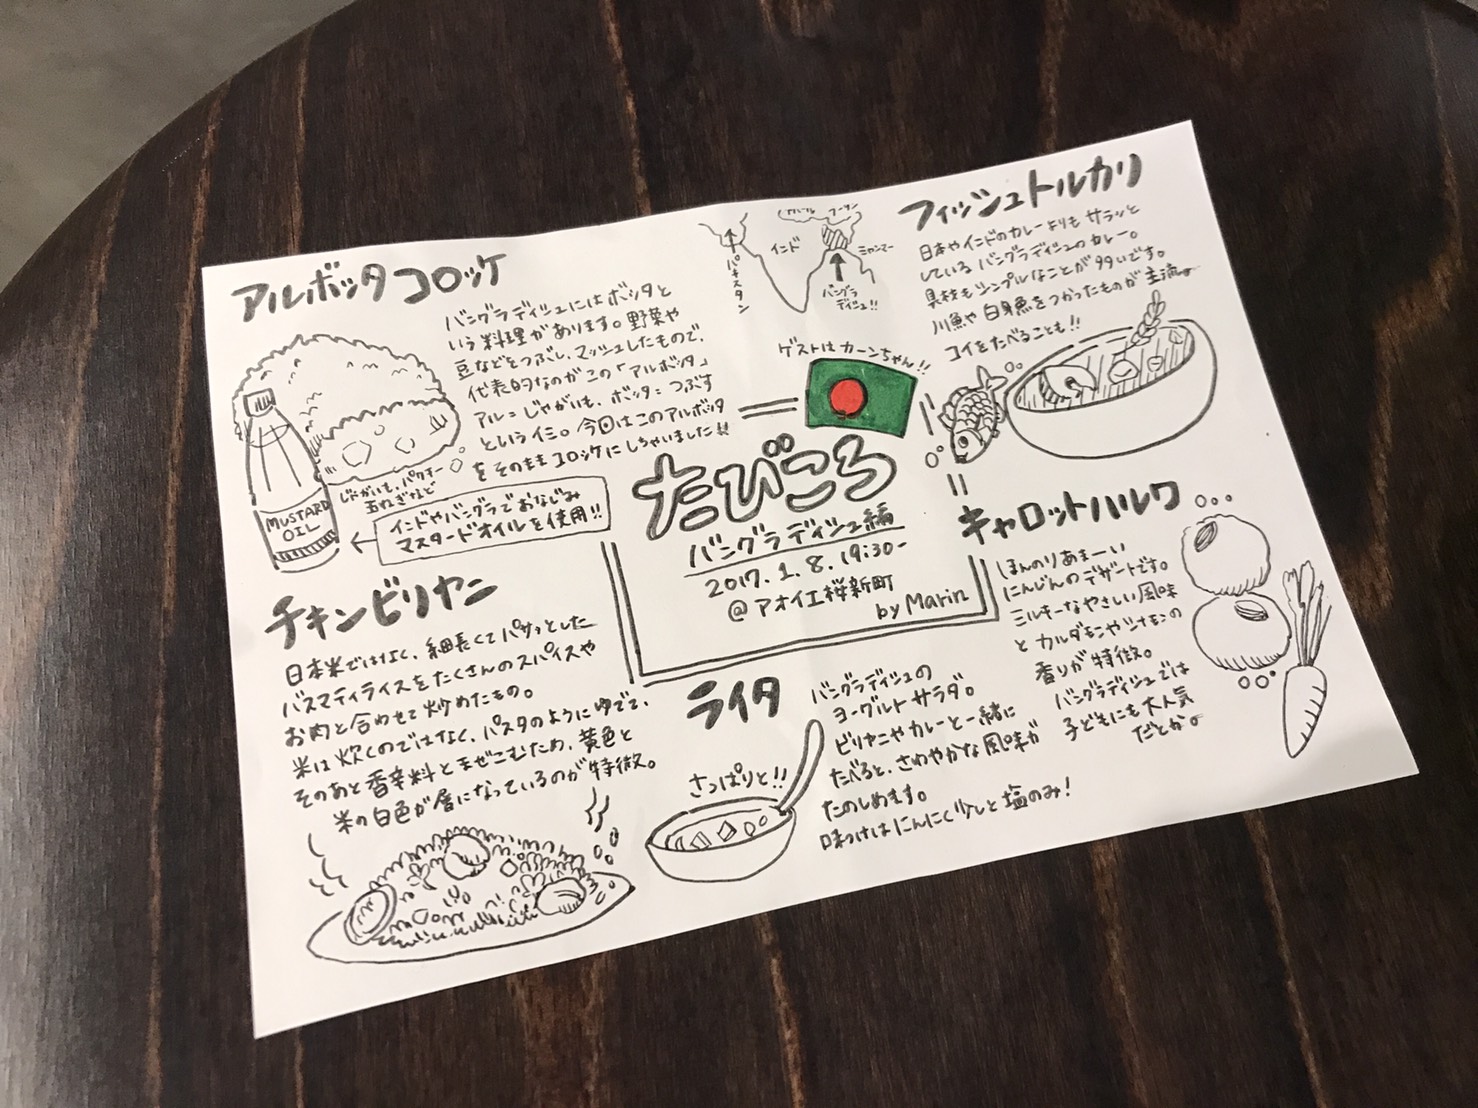 アルボッタコロッケ
バングラディシュにはボッタと
いう料理があります。野菜や
豆などをつぶし、マッシュしたもので、
代表的なのがこの「アルボッタ」
アル＝じゃがいも、ボッタ＝つぶす
というイミ。今回はこのアルボッタ
をそのままコロッケにしちゃいました!!
じゃがいも、パクチー
玉ねぎなど
MUSTARD
OIL
インドやバングラでおなじみ
マスタードオイルを使用!!
パキスタン
インド
ネパール
ブータン
ミャンマー
バングラ
ディシュ!!
フィッシュトルカリ
日本やインドのカレーよりもサラッと
しているバングラディシュのカレー。
具材もシンプルなことが多いです。
川魚や白身魚をつかったものが主流。
コイをたべることも!!
ゲストはカーンちゃん!!
たびころ
バングラディシュ編
2017.1.8.19:30-
@アオイエ桜新町
by Marin
キャロットハルワ
ほんのりあまーい
にんじんのデザートです。
ミルキーなやさしい風味
とカルダモンやシナモンの
香りが特徴。
バングラディシュでは
子どもにも大人気
だとか。
チキンビリヤニ
日本米ではなく、細長くてパサっとした
バスマティライスをたくさんのスパイスや
お肉と合わせて炒めたもの。
米は炊くのではなく、パスタのようにゆでて、
そのあと香辛料とまぜこむため、黄色と
米の白色が層になっているのが特徴。
ライタ
さっぱりと!!
バングラディシュの
ヨーグルトサラダ。
ビリヤニやカレーと一緒に
たべると、さわやかな風味が
たのしめます。
味つけはにんにく少しと塩のみ!